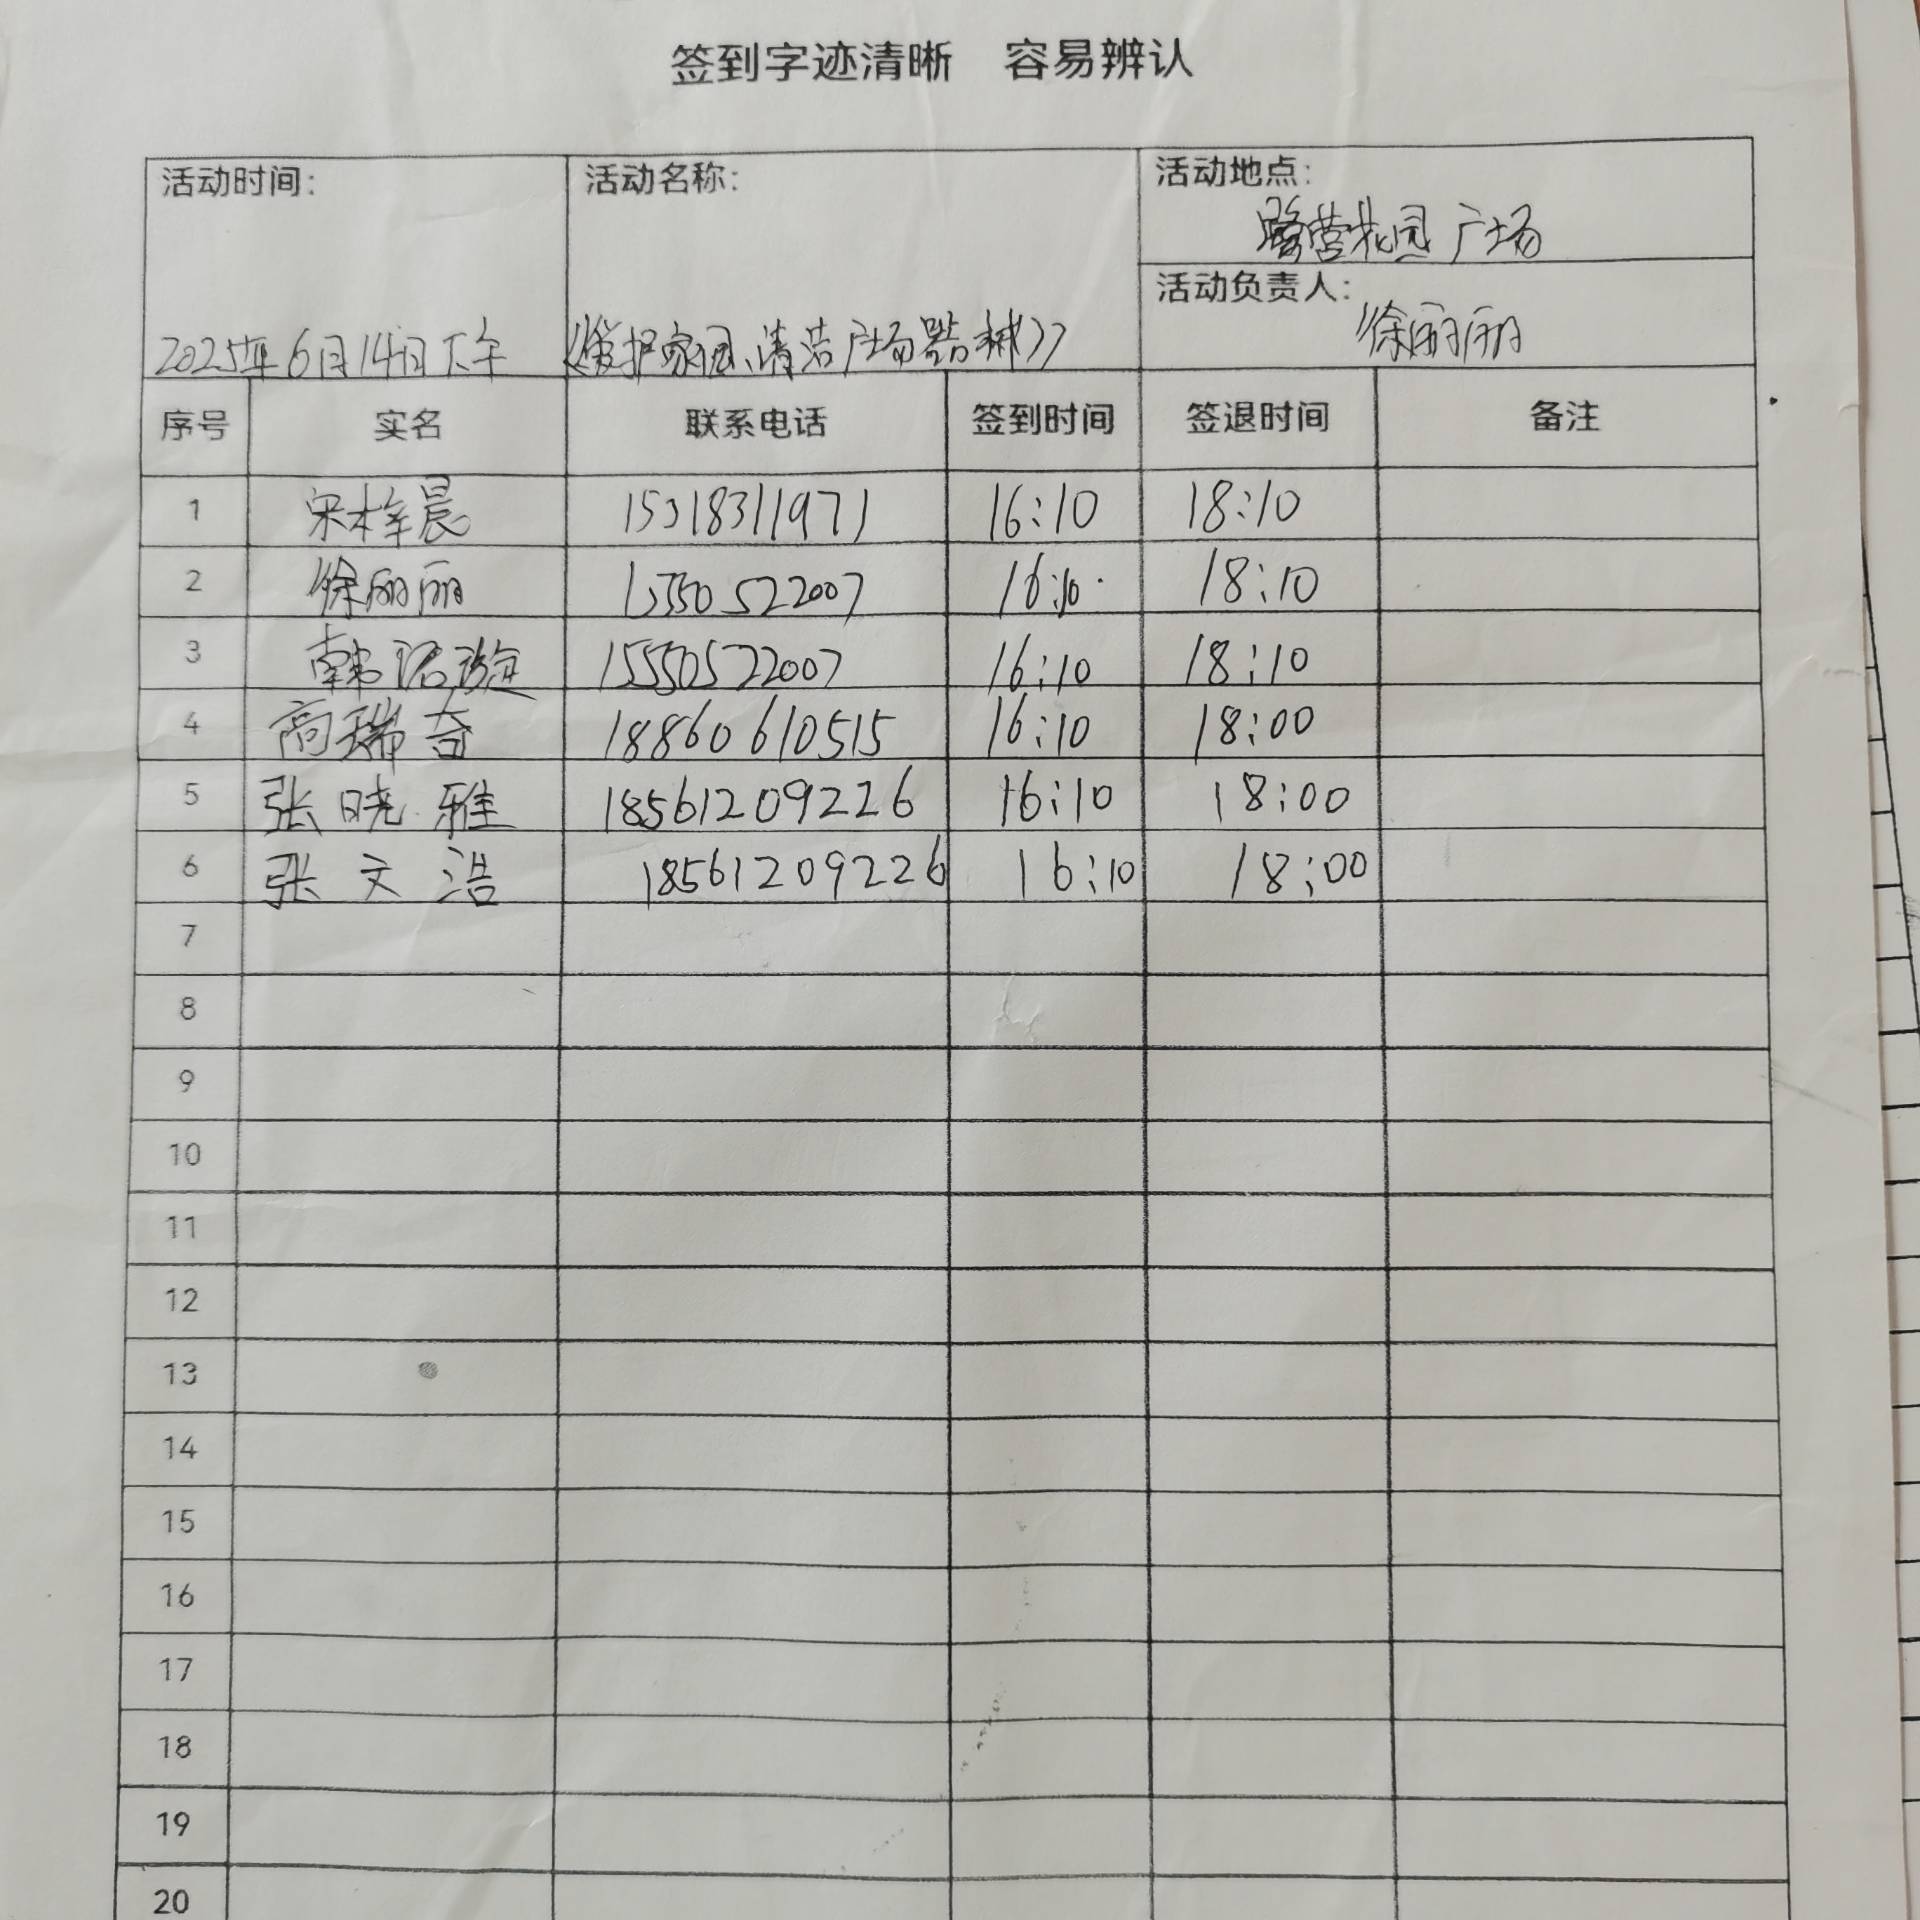 签到字迹清晰 容易辨认
活动时间: 活动名称: 活动地点:
营花园广场
活动负责人:
2025年6月14日下午 《爱护家园、清洁广场器械》 徐丽丽
序号 实名 联系电话 签到时间 签退时间 备注
1 宋梓晨 15318311971 16:10 18:10
2 徐丽丽 15550522007 16:10 18:10
3 韩诺璇 15550522007 16:10 18:10
4 高瑞奇 18860610515 16:10 18:00
5 张晓雅 18561209226 16:10 18:00
6 张文浩 18561209226 16:10 18:00
7
8
9
10
11
12
13
14
15
16
17
18
19
20